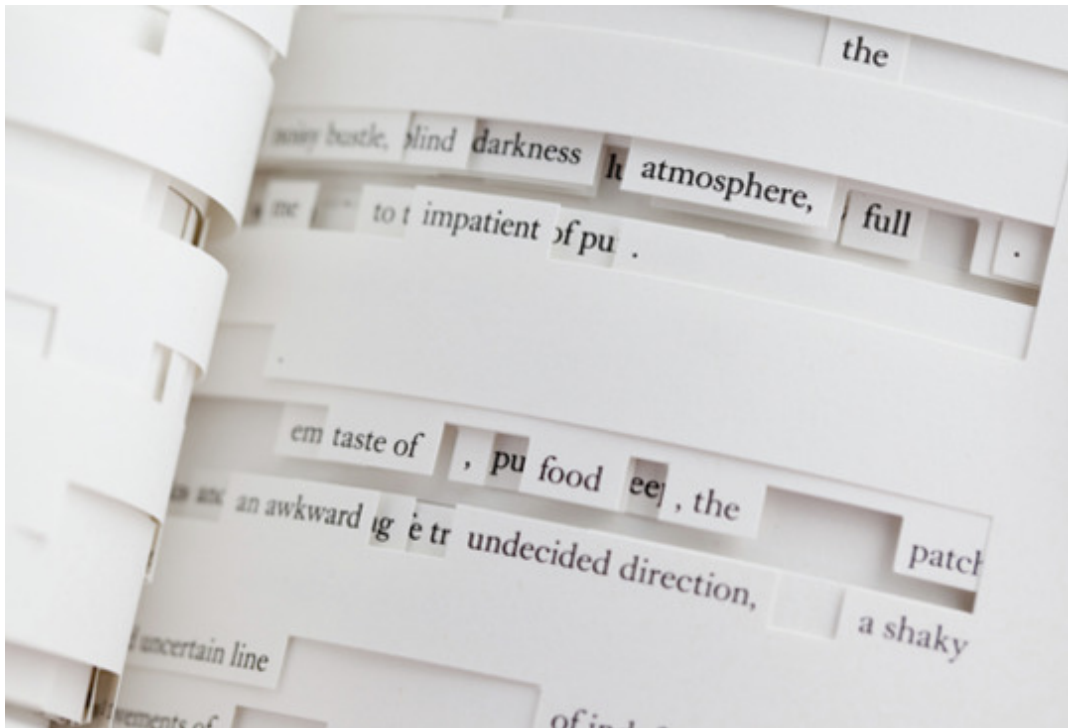 the
noisy bustle, blind darkness lu atmosphere, full .
me to t impatient of pu .
.
em taste of , pu food eep , the
an awkward ng e tr undecided direction, patch
a shaky
d uncertain line
vements of of ind